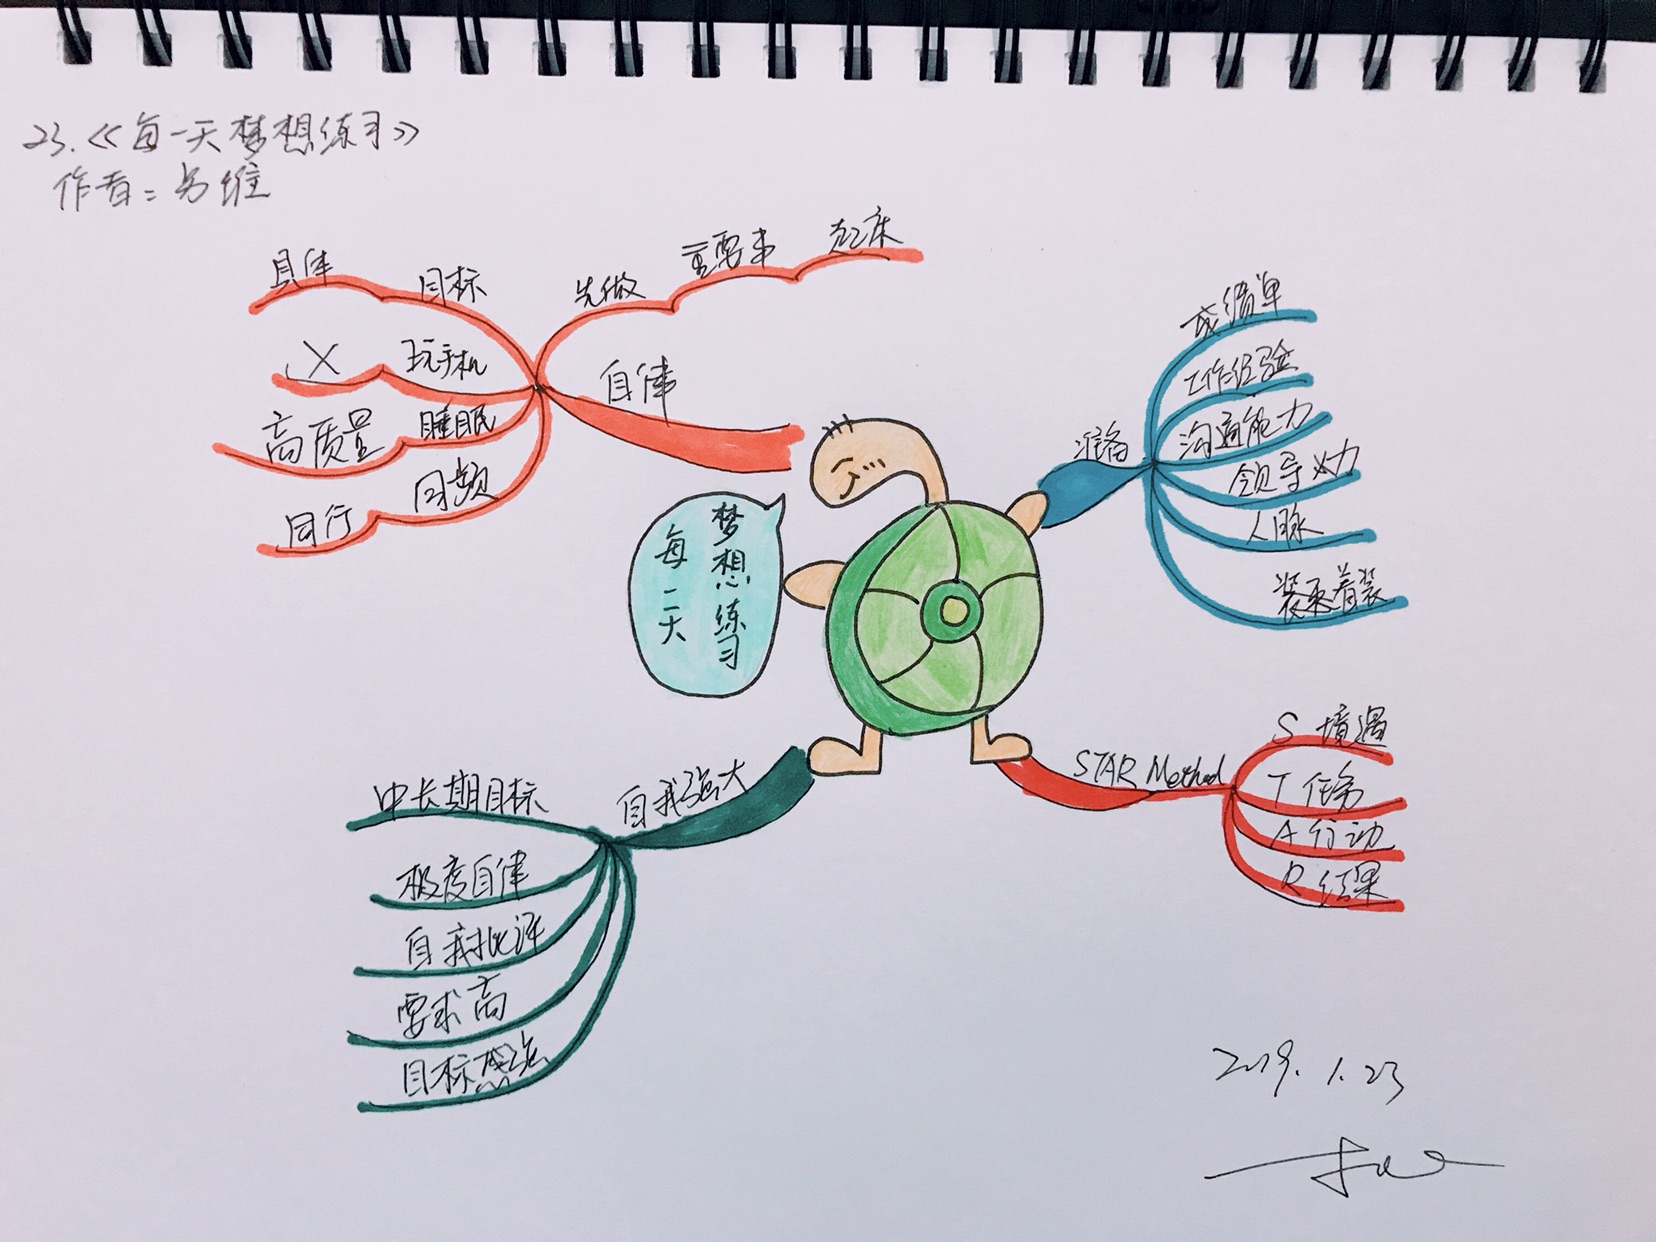 23.《每一天梦想练习》
作者：另维
具体
目标
先做
重要事
起床
X
玩手机
自律
高质量
睡眠
同行
同频
梦想练习
每一天
准备
成绩单
工作经验
沟通能力
领导力
人脉
着装
STAR Method
S 境遇
T 任务
A 行动
R 结果
自我强大
中长期目标
极度自律
自我批评
要求高
目标感强
2019.1.23